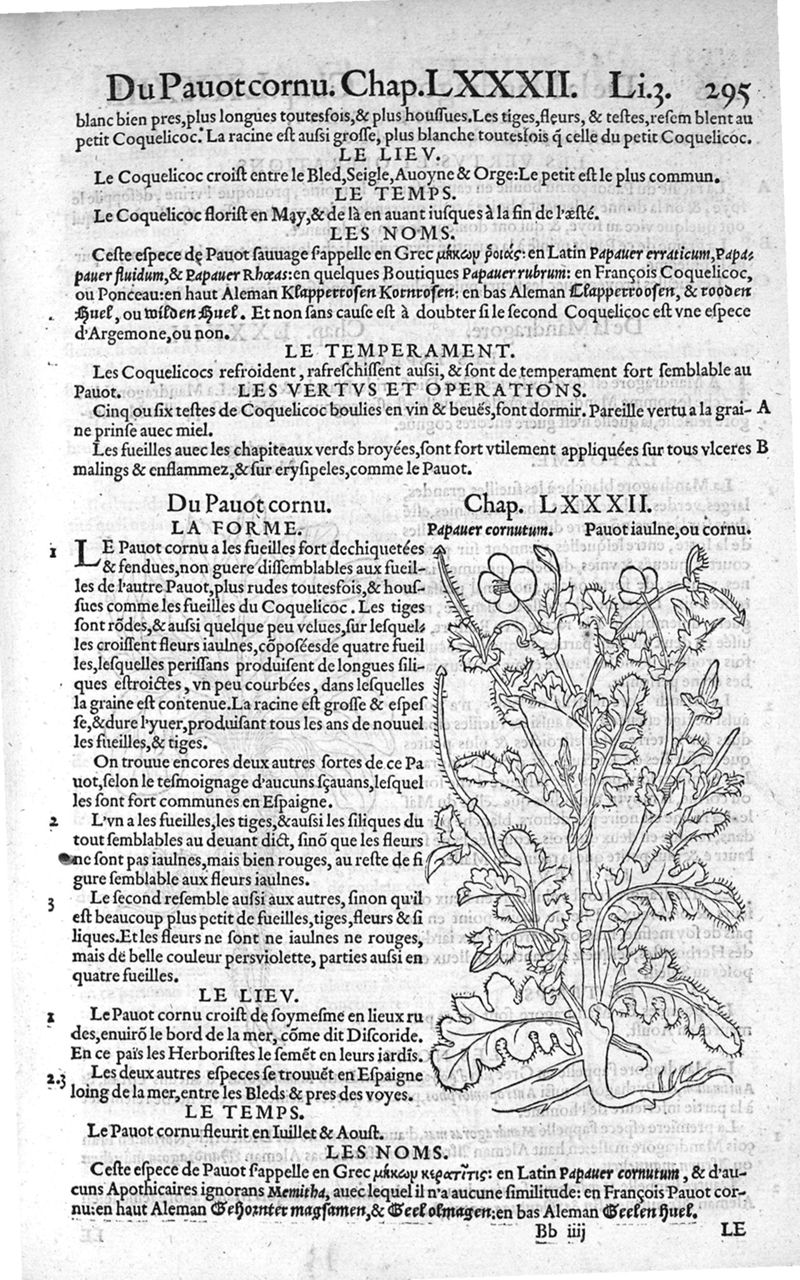 Du Pauot cornu. Chap. LXXXII. Li.3. 295
blanc bien pres, plus longues toutesfois, & plus houſſues. Les tiges, fleurs, & teſtes, reſemblent au
petit Coquelicoc. La racine eſt auſsi groſſe, plus blanche toutesfois q̃ celle du petit Coquelicoc.
LE LIEV.
Le Coquelicoc croiſt entre le Bled, Seigle, Auoyne & Orge: Le petit eſt le plus commun.
LE TEMPS.
Le Coquelicoc floriſt en May, & de là en auant iuſques à la fin de l'æſté.
LES NOMS.
Ceſte eſpece de Pauot ſauuage ſ'appelle en Grec μήκων ῥοιάς: en Latin Papauer erraticum, Papa-
pauer fluidum, & Papauer Rhœas: en quelques Boutiques Papauer rubrum: en François Coquelicoc,
ou Ponceau: en haut Aleman Klapperroſen Kornroſen: en bas Aleman Clapperrooſen, & rooden
Huel, ou wilden Huel. Et non ſans cauſe eſt à doubter ſi le ſecond Coquelicoc eſt vne eſpece
d'Argemone, ou non.
LE TEMPERAMENT.
Les Coquelicocs refroident, rafreſchiſſent auſsi, & ſont de temperament fort ſemblable au
Pauot. LES VERTVS ET OPERATIONS.
Cinq ou ſix teſtes de Coquelicoc boulies en vin & beuës, font dormir. Pareille vertu a la grai- A
ne prinſe auec miel.
Les fueilles auec les chapiteaux verds broyées, ſont fort vtilement appliquées ſur tous vlceres B
malings & enflammez, & ſur eryſipeles, comme le Pauot.
Du Pauot cornu. Chap. LXXXII.
LA FORME.
Papauer cornutum. Pauot iaulne, ou cornu.
1 LE Pauot cornu a les fueilles fort dechiquetées
& fendues, non guere diſſemblables aux fueil-
les de l'autre Pauot, plus rudes toutesfois, & houſ-
ſues comme les fueilles du Coquelicoc. Les tiges
ſont rõdes, & auſsi quelque peu velues, ſur leſquel-
les croiſſent fleurs iaulnes, cõpoſées de quatre fueil
les, leſquelles periſſans produiſent de longues ſili-
ques eſtroictes, vn peu courbées, dans leſquelles
la graine eſt contenue. La racine eſt groſſe & eſpeſ
ſe, & dure l'yuer, produiſant tous les ans de nouuel
les fueilles, & tiges.
On trouue encores deux autres ſortes de ce Pa
uot, ſelon le teſmoignage d'aucuns ſçauans, leſquel
les ſont fort communes en Eſpaigne.
2 L'vn a les fueilles, les tiges, & auſsi les ſiliques du
tout ſemblables au deuant dict, ſinõ que les fleurs
ne ſont pas iaulnes, mais bien rouges, au reſte de fi
gure ſemblable aux fleurs iaulnes.
3 Le ſecond reſemble auſsi aux autres, ſinon qu'il
eſt beaucoup plus petit de fueilles, tiges, fleurs & ſi
liques. Et les fleurs ne ſont ne iaulnes ne rouges,
mais de belle couleur perſviolette, parties auſsi en
quatre fueilles.
LE LIEV.
1 Le Pauot cornu croiſt de ſoymeſme en lieux ru
des, enuirõ le bord de la mer, cõme dit Dioſcoride.
En ce païs les Herboriſtes le ſemẽt en leurs iardĩs.
2.3 Les deux autres eſpeces ſe trouuẽt en Eſpaigne
loing de la mer, entre les Bleds & pres des voyes.
LE TEMPS.
Le Pauot cornu fleurit en Iuillet & Aouſt.
LES NOMS.
Ceſte eſpece de Pauot ſ'appelle en Grec μήκων κερατῖτις: en Latin Papauer cornutum, & d'au-
cuns Apothicaires ignorans Memitha, auec lequel il n'a aucune ſimilitude: en François Pauot cor-
nu: en haut Aleman Gehornter magſamen, & Geel olmagen: en bas Aleman Geelen Huel.
Bb iiij LE